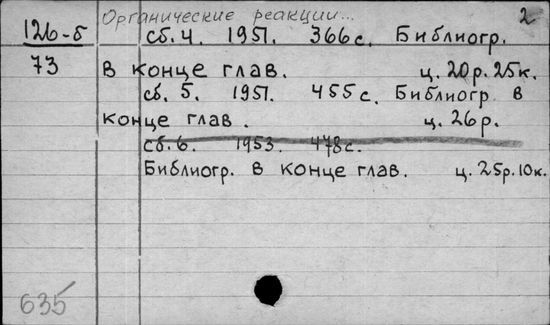 Органические реакции... 2
126-б сб. 4. 1951. 366 с. Библиогр.
73 в конце глав. ц. 20 р. 25 к.
сб. 5. 1951. 455 с. Библиогр в
конце глав. ц. 26 р.
сб. 6. 1953. 478 с.
Библиогр. в конце глав. ц. 25 р. 10 к.
635